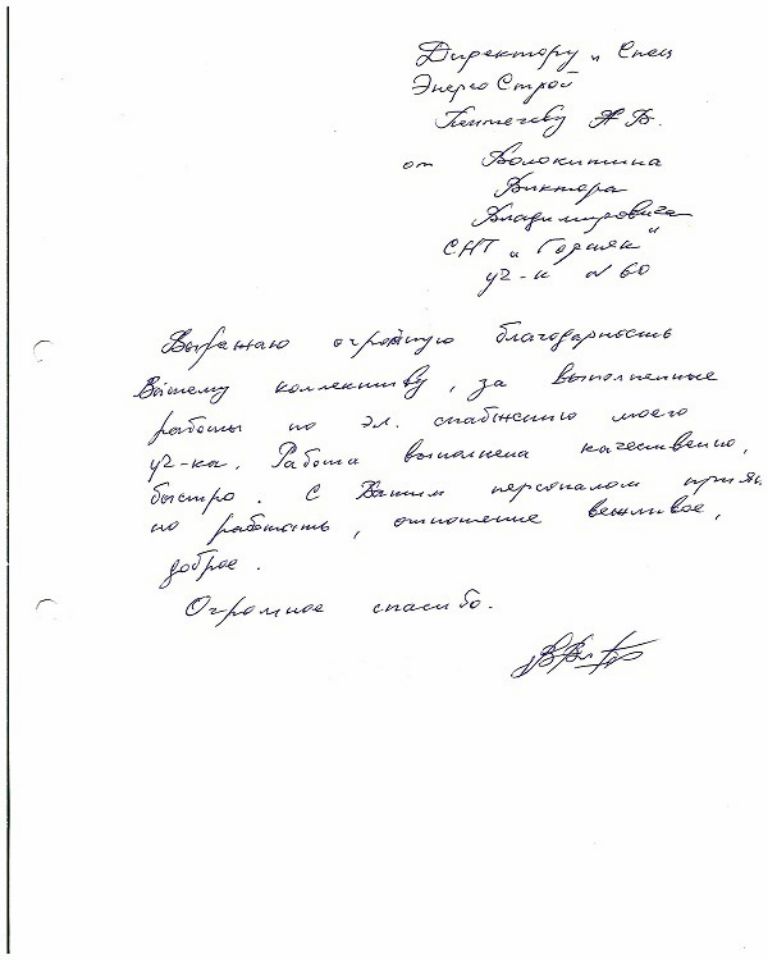 Директору „Спец
ЭнергоСтрой
А В.
от Волокитина
Виктора
Владимировича
СНТ „Горняк"
уч-к N 60
Выражаю огромную благодарность
Вашему коллективу, за выполненные
работы по эл. снабжению моего
уч-ка. Работа выполнена качественно,
быстро. С Вашим персоналом прият
но работать, отношение вежливое,
доброе.
Огромное спасибо.